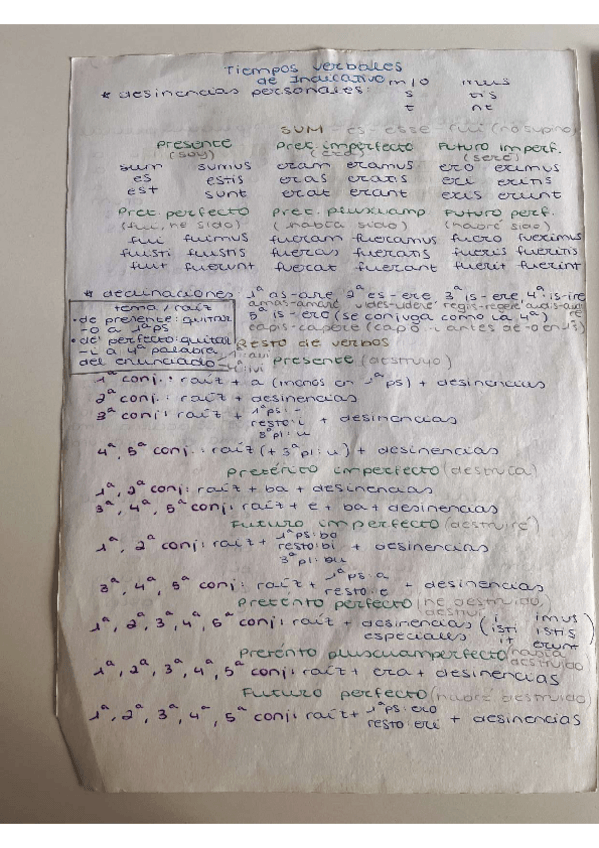 Tiempos verbales
de Indicativo
* desinencias personales: m/o mus
s tis
t nt
SUM - es - esse - fui (no supino)
Presente Pret. imperfecto Futuro imperf.
(soy) (era) (seré)
sum sumus eram eramus ero erimus
es estis eras eratis eri eritis
est sunt erat erant eris erunt
Pret. perfecto Pret. pluscuamp Futuro perf.
(fui, he sido) (había sido) (habré sido)
fui fuimus fueram fueramus fuero fuerimus
fuisti fuistis fueras fueratis fueris fueritis
fuit fuerunt fuerat fuerant fuerit fuerint
* declinaciones: 1ª as-are, 2ª es-ere, 3ª is-ere, 4ª is-ire
amas-amare vides-videre regis-regere audis-audire
5ª is-ere (se conjuga como la 4ª)
capis-capere (capo i antes de -o en 1ª)
tema/raíz
• de presente: quitar
-o a 1ª ps
• de perfecto: quitar
-i a 4ª palabra
del enunciado
Resto de verbos
Presente (destruyo)
1ª conj.: raíz + a (menos en 1ª ps) + desinencias
2ª conj: raíz + desinencias
3ª conj: raíz + 1ª ps: -
resto: i + desinencias
3ª pl: u
4ª, 5ª conj.: raíz (+ 3ª pl: u) + desinencias
Pretérito imperfecto (destruía)
1ª, 2ª conj: raíz + ba + desinencias
3ª, 4ª, 5ª conj: raíz + e + ba + desinencias
Futuro imperfecto (destruiré)
1ª, 2ª conj: raíz + 1ª ps: bo
resto: bi + desinencias
3ª pl: bu
3ª, 4ª, 5ª conj: raíz + 1ª ps: a
resto: e + desinencias
Pretérito perfecto (he destruido,
destruí)
1ª, 2ª, 3ª, 4ª, 5ª conj: raíz + desinencias especiales (i imus
isti istis
it erunt)
Pretérito pluscuamperfecto (había
destruido)
1ª, 2ª, 3ª, 4ª, 5ª conj: raíz + era + desinencias
Futuro perfecto (habré destruido)
1ª, 2ª, 3ª, 4ª, 5ª conj: raíz + 1ª ps: ero
resto: eri + desinencias